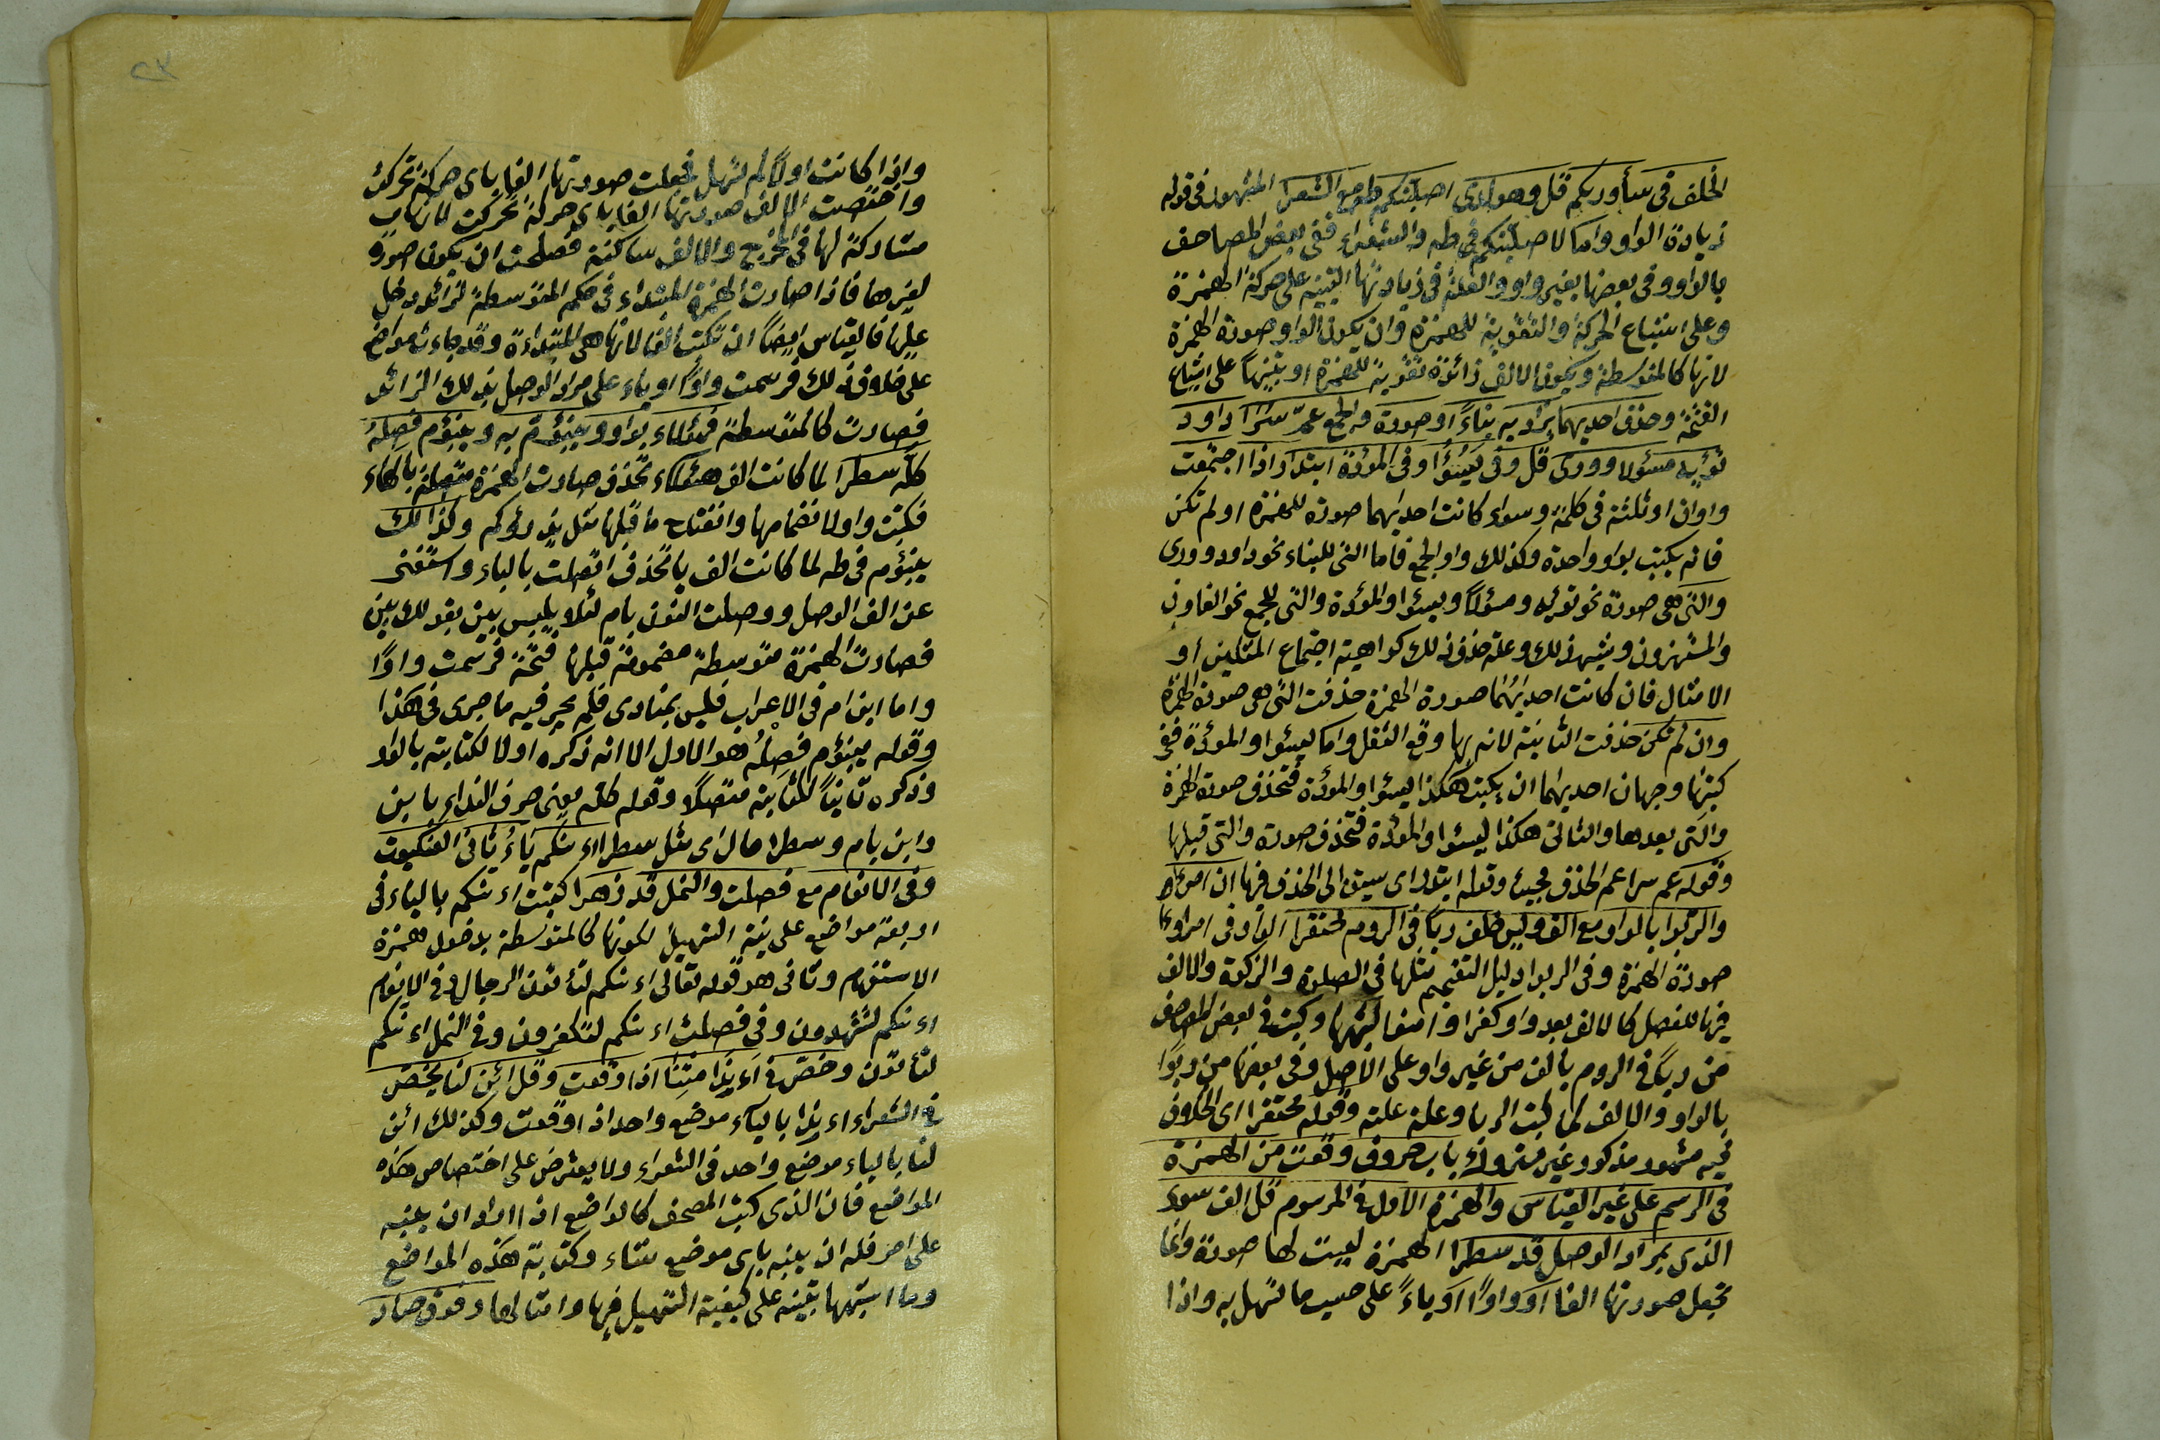 الخلف في سأوريكم قل وهو لدى اصلبنكم طه مع الشعرا المشهور في قوله
زيادة الواو واما لاصلبنكم في طه والشعراء ففي بعض المصاحف
بالواو وفي بعضها بغير واو والعلة في زيادتها التنبيه على حركة الهمزة
وعلى اشباع الحركة والتقوية للهمزة وان يكون الواو صورة الهمزة
لانها كالمتوسطة ويكون الالف زائدة تقوية للهمزة او تنبيهاً على اشباع
الفتحة وحذف احديهما يزاد به بناءً او صورة والجمع عمّ سرا داود
تؤيه مسئولا وورى قل وفي يسؤا وفي المؤدة ابتدا اذا اجتمعت
واوان او ثلثة في كلمة وسواء كانت احديهما صورة للهمزة او لم تكن
فانه يكتب بواو واحدة وكذلك واو الجمع فاما التي للبناء نحو داود وورى
والتي هي صورة نحو تؤيه ومسؤلاً ويسئوا والمؤدة والتي للجمع نحو الغاون
والمستهزون ويشبه ذلك وعلة حذف ذلك كراهية اجتماع المثلين أو
الامثال فان كانت احديهما صورة الهمزة حذفت التي هي صورة الهمزة
وان لم تكن حذفت الثانية لانه بها وقع الثقل واما ليسئوا والموءدة ففي
كتبها وجهان احديهما ان يكتب هكذا ليسئوا والمؤدة فتحذف صورة الهمزة
والتي بعدها والثاني هكذا ليسئوا والمؤدة فتحذف صورة والتي قبلها
وقوله عم سرا عم الحذف مجيئ وقوله ابتدا اي سبق الى الحذف فيها ان امرؤا
والربوا بالواو مع الف وليس خلف رباً في الروم محتقرا الواو في امرؤا
صورة الهمزة وفي الربوا دليل التفخيم مثلها في الصلوة والزكوة والالف
فيها للفصل كالالف بعد واو كفروا وامنوا لشبهها وكتب في بعض المصاحف
من رباً في الروم بالف من غير واو على الاصل وفي بعضها من ربوًا
بالواو والالف كما كتب الربا وعلة علته وقوله محتقرا اي الخلاف
فيه مشهور مذكور غير متروك باب حروف وقعت من الهمزة
في الرسم على غير القياس والهمزة الاول في المرسوم قل الف سوى
الذي بمراد الوصل قد سطرا الهمزة ليست لها صورة وانما
تجعل صورتها الفا او واوًا او ياءً على حسب ما تسهل به واذا
٢٣
واذا كانت اولاً لم تسهل فجعلت صورتها الفا باى حركة تحركت
واختصت الالف صورتها الفا باي حركة تحركت لانها
مشاركة لها في المخرج والالف ساكنة فصلحت ان يكون صورة
لغيرها فاذا صارت الهمزة المبتداء في حكم المتوسطة لزائد دخل
عليها فالقياس ايضاً ان تكتب الفا لانها هي المبتداءة وقد جاءت مواضع
على خلاف ذلك فرسمت واوًا او ياء على مراد الوصل بذلك الزائد
فصارت كالمتوسطة فهؤلاء بواو ويبنؤم به ويبنؤم فصله
كله سطرا لما كانت الف هؤلاء تحذف صارت الهمزة متصلة بالهاء
فكتبت واوا لانضمامها وانفتاح ما قبلها مثل يذرؤكم وكذلك
يبنؤم في طه لما كانت الف يا تحذف اتصلت بالباء واستغني
عن الف الوصل ووصلت النون بام لئلا يلبس بين بقولك بين
فصارت الهمزة متوسطة مضمومة قبلها فتحة فرسمت واوًا
واما ابن ام في الاعراف فليس بمنادى فلم يجر فيه ما جرى في هذا
وقوله يبنؤم فصله هو الاول الا انه ذكره اولا لكتابته بالواو
وذكره ثانياً لكتابته متصلا وقوله كله يعني حرف النداء بابن
وابن بام وسطرا حال اى مثل سطرا اءنكم ياءُ ثاني العنكبوت
وفي الانعام مع فصلت والنمل قد زهرا كتبت اءنكم بالياء في
اربعة مواضع على نية التسهيل لكونها كالمتوسطة بدخول همزة
الاستفهام وثاني هو قوله تعالى اءنكم لتأتون الرجال وفي الانعام
اءنكم لتشهدون وفي فصلت اءنكم لتكفرون وفي النمل اءنكم
لتأتون وخص في أءيذا متنا اذا وقعت وقل ائن لنا يخص
في الشعراء اءيذا بالياء موضع واحد اذا وقعت وكذلك ائن
لنا بالياء موضع واحد في الشعراء ولا يعترض على اختصاص هذه
المواضع فان الذي كتب المصحف كالواضع اذا اراد ان ينبه
على امر فله ان ينبه باى موضع شاء وكتابة هذه المواضع
وما اشبهها تنبيه على كيفية التسهيل فيها وامثالها وفوق صاد